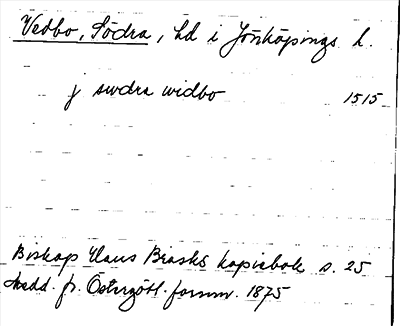 Vedbo, Södra, hd i Jönköpings l.
j swdra widbo 1515
Biskop Hans Brasks kopiebok s. 25
Medd. fr. Östergötl. fornm. 1875